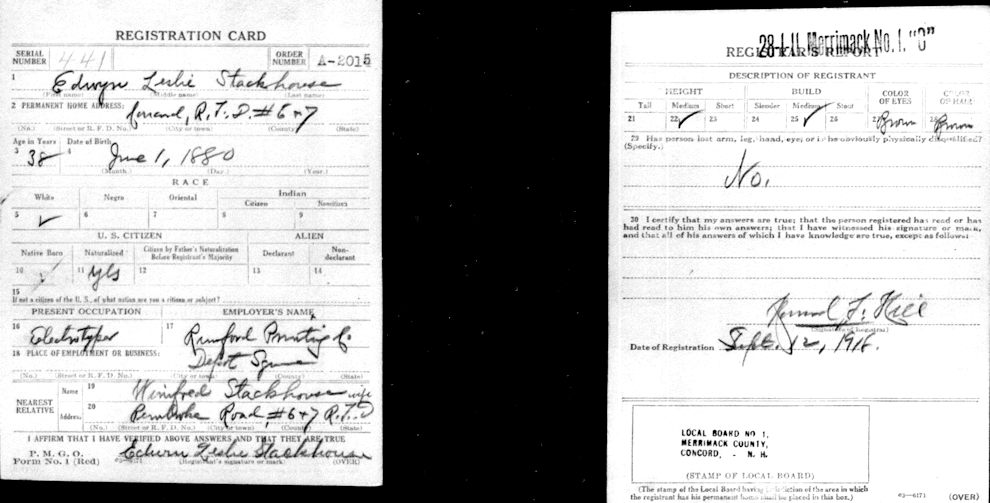 REGISTRATION CARD
SERIAL NUMBER 441 ORDER NUMBER A-2015
1 Edwyn Leslie Stackhouse
(First name) (Middle name) (Last name)
2 PERMANENT HOME ADDRESS:
R.F.D. #6+7
(No.) (Street or R. F. D. No.) (City or town) (County) (State)
Age in Years Date of Birth
3 38 4 June 1, 1880
(Month.) (Day.) (Year.)
RACE
White Negro Oriental Indian
Citizen Noncitizen
5 6 7 8 9
U. S. CITIZEN ALIEN
Native Born Naturalized Citizen by Father's Naturalization Before Registrant's Majority Declarant Non-declarant
10 11 yes 12 13 14
15
If not a citizen of the U. S., of what nation are you a citizen or subject?
PRESENT OCCUPATION EMPLOYER'S NAME
16 Electrotyper 17 Rumford Printing Co.
18 PLACE OF EMPLOYMENT OR BUSINESS:
Depot Square
(No.) (Street or R. F. D. No.) (City or town) (County) (State)
NEAREST RELATIVE
Name 19 Winifred Stackhouse wife
Address 20 Pembroke Road, #6+7 R.F.D
(No.) (Street or R. F. D. No.) (City or town) (County) (State)
I AFFIRM THAT I HAVE VERIFIED ABOVE ANSWERS AND THAT THEY ARE TRUE
P. M. G. O.
Form No. 1 (Red) Edwyn Leslie Stackhouse
(Registrant's signature or mark) (OVER)
28-1-11 Merrimack No. 1. "C"
REGISTRAR'S REPORT
DESCRIPTION OF REGISTRANT
HEIGHT BUILD COLOR OF EYES COLOR OF HAIR
Tall Medium Short Slender Medium Stout
21 22 23 24 25 26 27 Brown 28 Brown
29 Has person lost arm, leg, hand, eye, or is he obviously physically disqualified?
(Specify.)
No.
30 I certify that my answers are true; that the person registered has read or has
had read to him his own answers; that I have witnessed his signature or mark,
and that all of his answers of which I have knowledge are true, except as follows:
(Signature of Registrar)
Date of Registration Sept. 12, 1918.
LOCAL BOARD NO 1,
MERRIMACK COUNTY,
CONCORD, - N. H.
(STAMP OF LOCAL BOARD)
(The stamp of the Local Board having jurisdiction of the area in which
the registrant has his permanent home must be placed in this box.)
03-6171 (OVER)